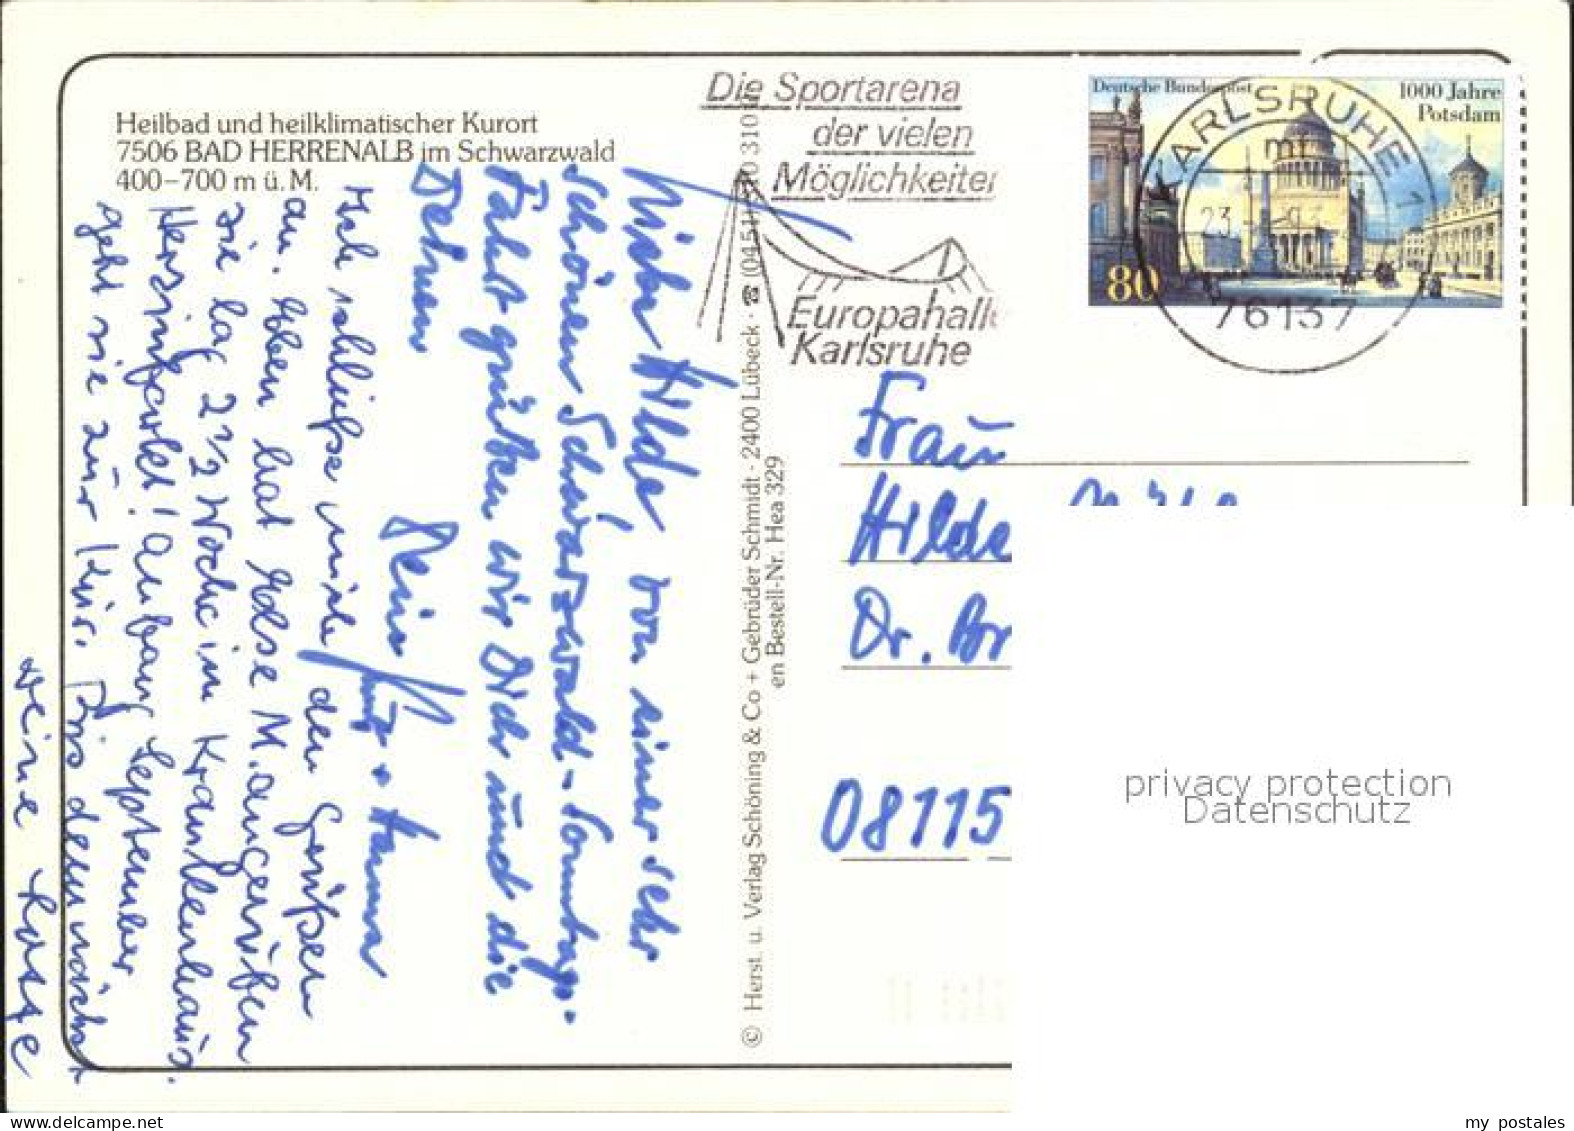 Heilbad und heilklimatischer Kurort
7506 BAD HERRENALB im Schwarzwald
400–700 m ü. M.
Die Sportarena
der vielen
Möglichkeiten
Europahalle
Karlsruhe
Deutsche Bundespost
1000 Jahre
Potsdam
80
KARLSRUHE 1
mf
23
76137
Liebe Hilde, von einer sehr
schönen Schwarzwald-Sonntags-
Fahrt grüßen wir Dich und die
Deinen
Dein
+ Hanna
Ich schließe mich den Grüßen
an. Eben hat Ilse M. angerufen
Sie lag 2 1/2 Woche im Krankenhaus.
Herzinfarkt! Anfang September
geht sie zur Kur. Bis demnächst
Deine
© Herst. u. Verlag Schöning & Co + Gebrüder Schmidt · 2400 Lübeck · ☎ (0451)
en Bestell-Nr. Hea 329
Frau
Hilde
Dr. Br
08115
privacy protection
Datenschutz
my postales